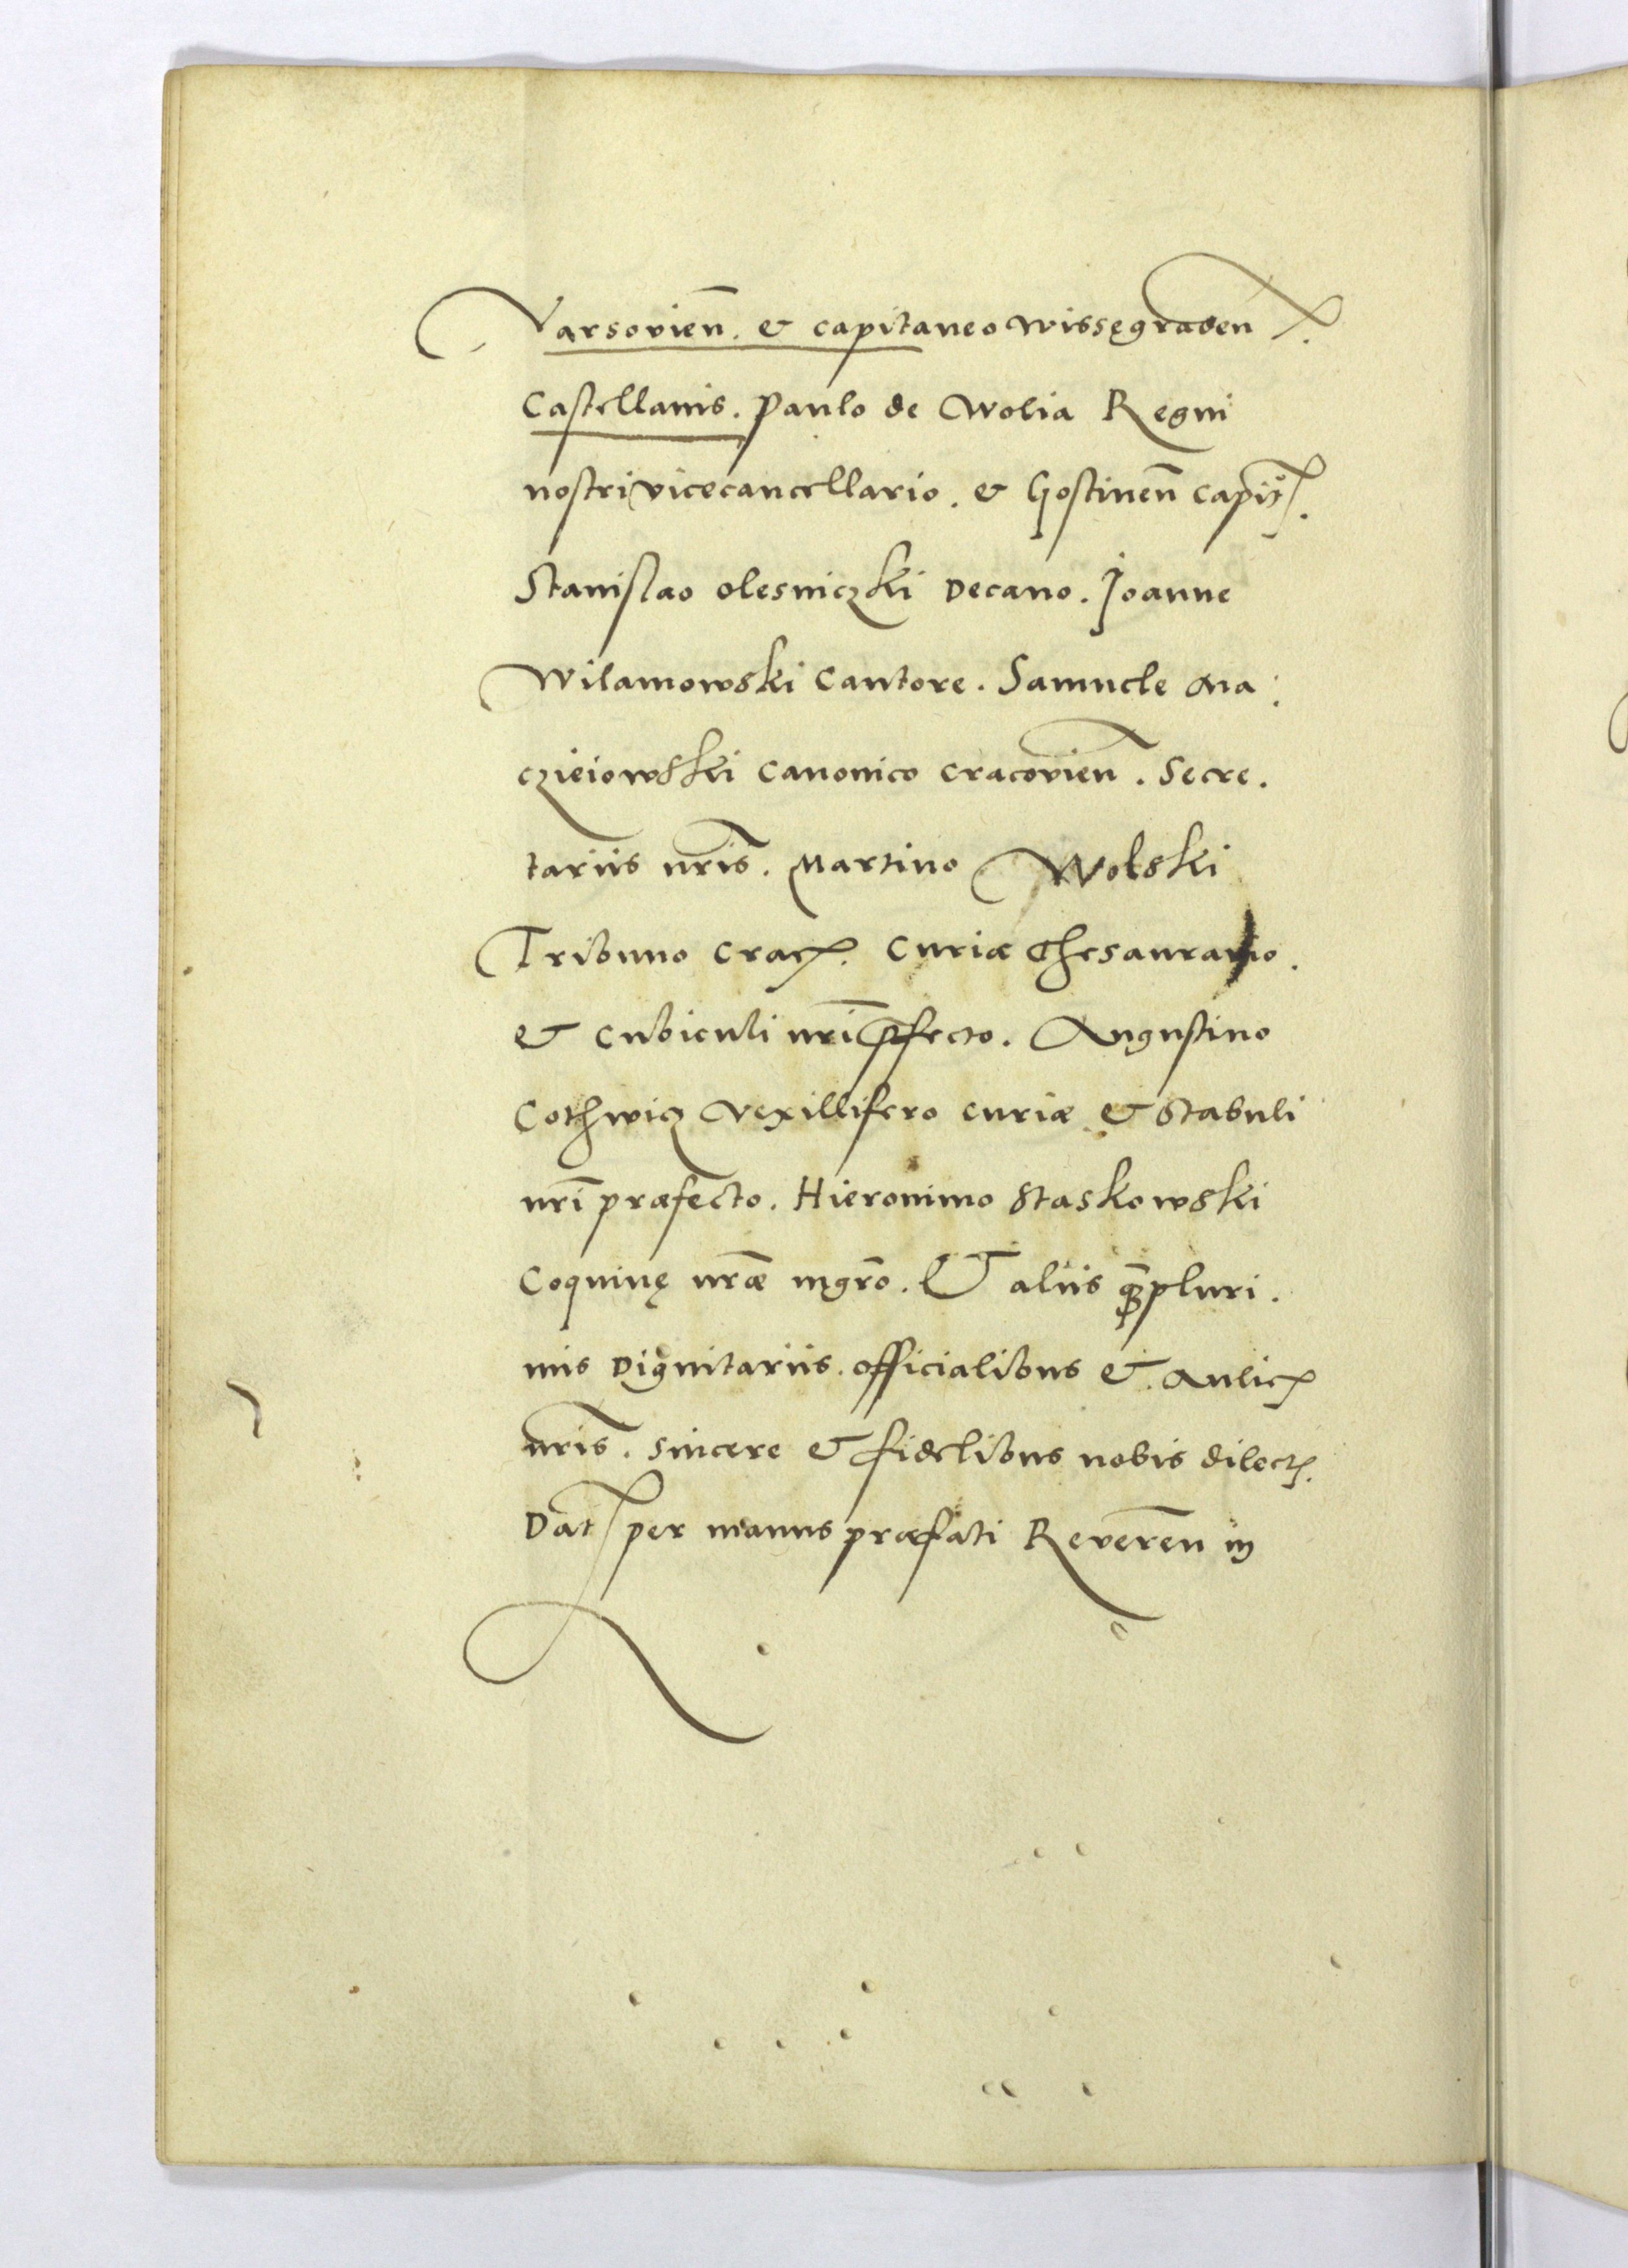 Varsovien̄. & capitaneo Wissegraden.
Castellanis. Paulo de Wolia Regni
nostri vicecancellario. & Gostinen̄ capit.
Stanislao olesniczki Decano. Joanne
Wilamowski Cantore. Samuele Ma:
czieiowski Canonico Cracovien̄. Secre.
tariis nr̄is. Martino Wolski
Tribuno Crac. Curiæ Thesaurario.
& Cubiculi nr̄i p̄fecto. Augustino
Cothwicz Vexillifero curiæ & Stabuli
nr̄i præfecto. Hieronimo Staskowski
Coquinę nr̄æ mgr̄o. Et aliis q̄pluri.
mis Dignitariis. officialibus & Aulic
nr̄is. sincere & fidelibus nobis dilect.
Dat per manus præfati Reveren̄ in